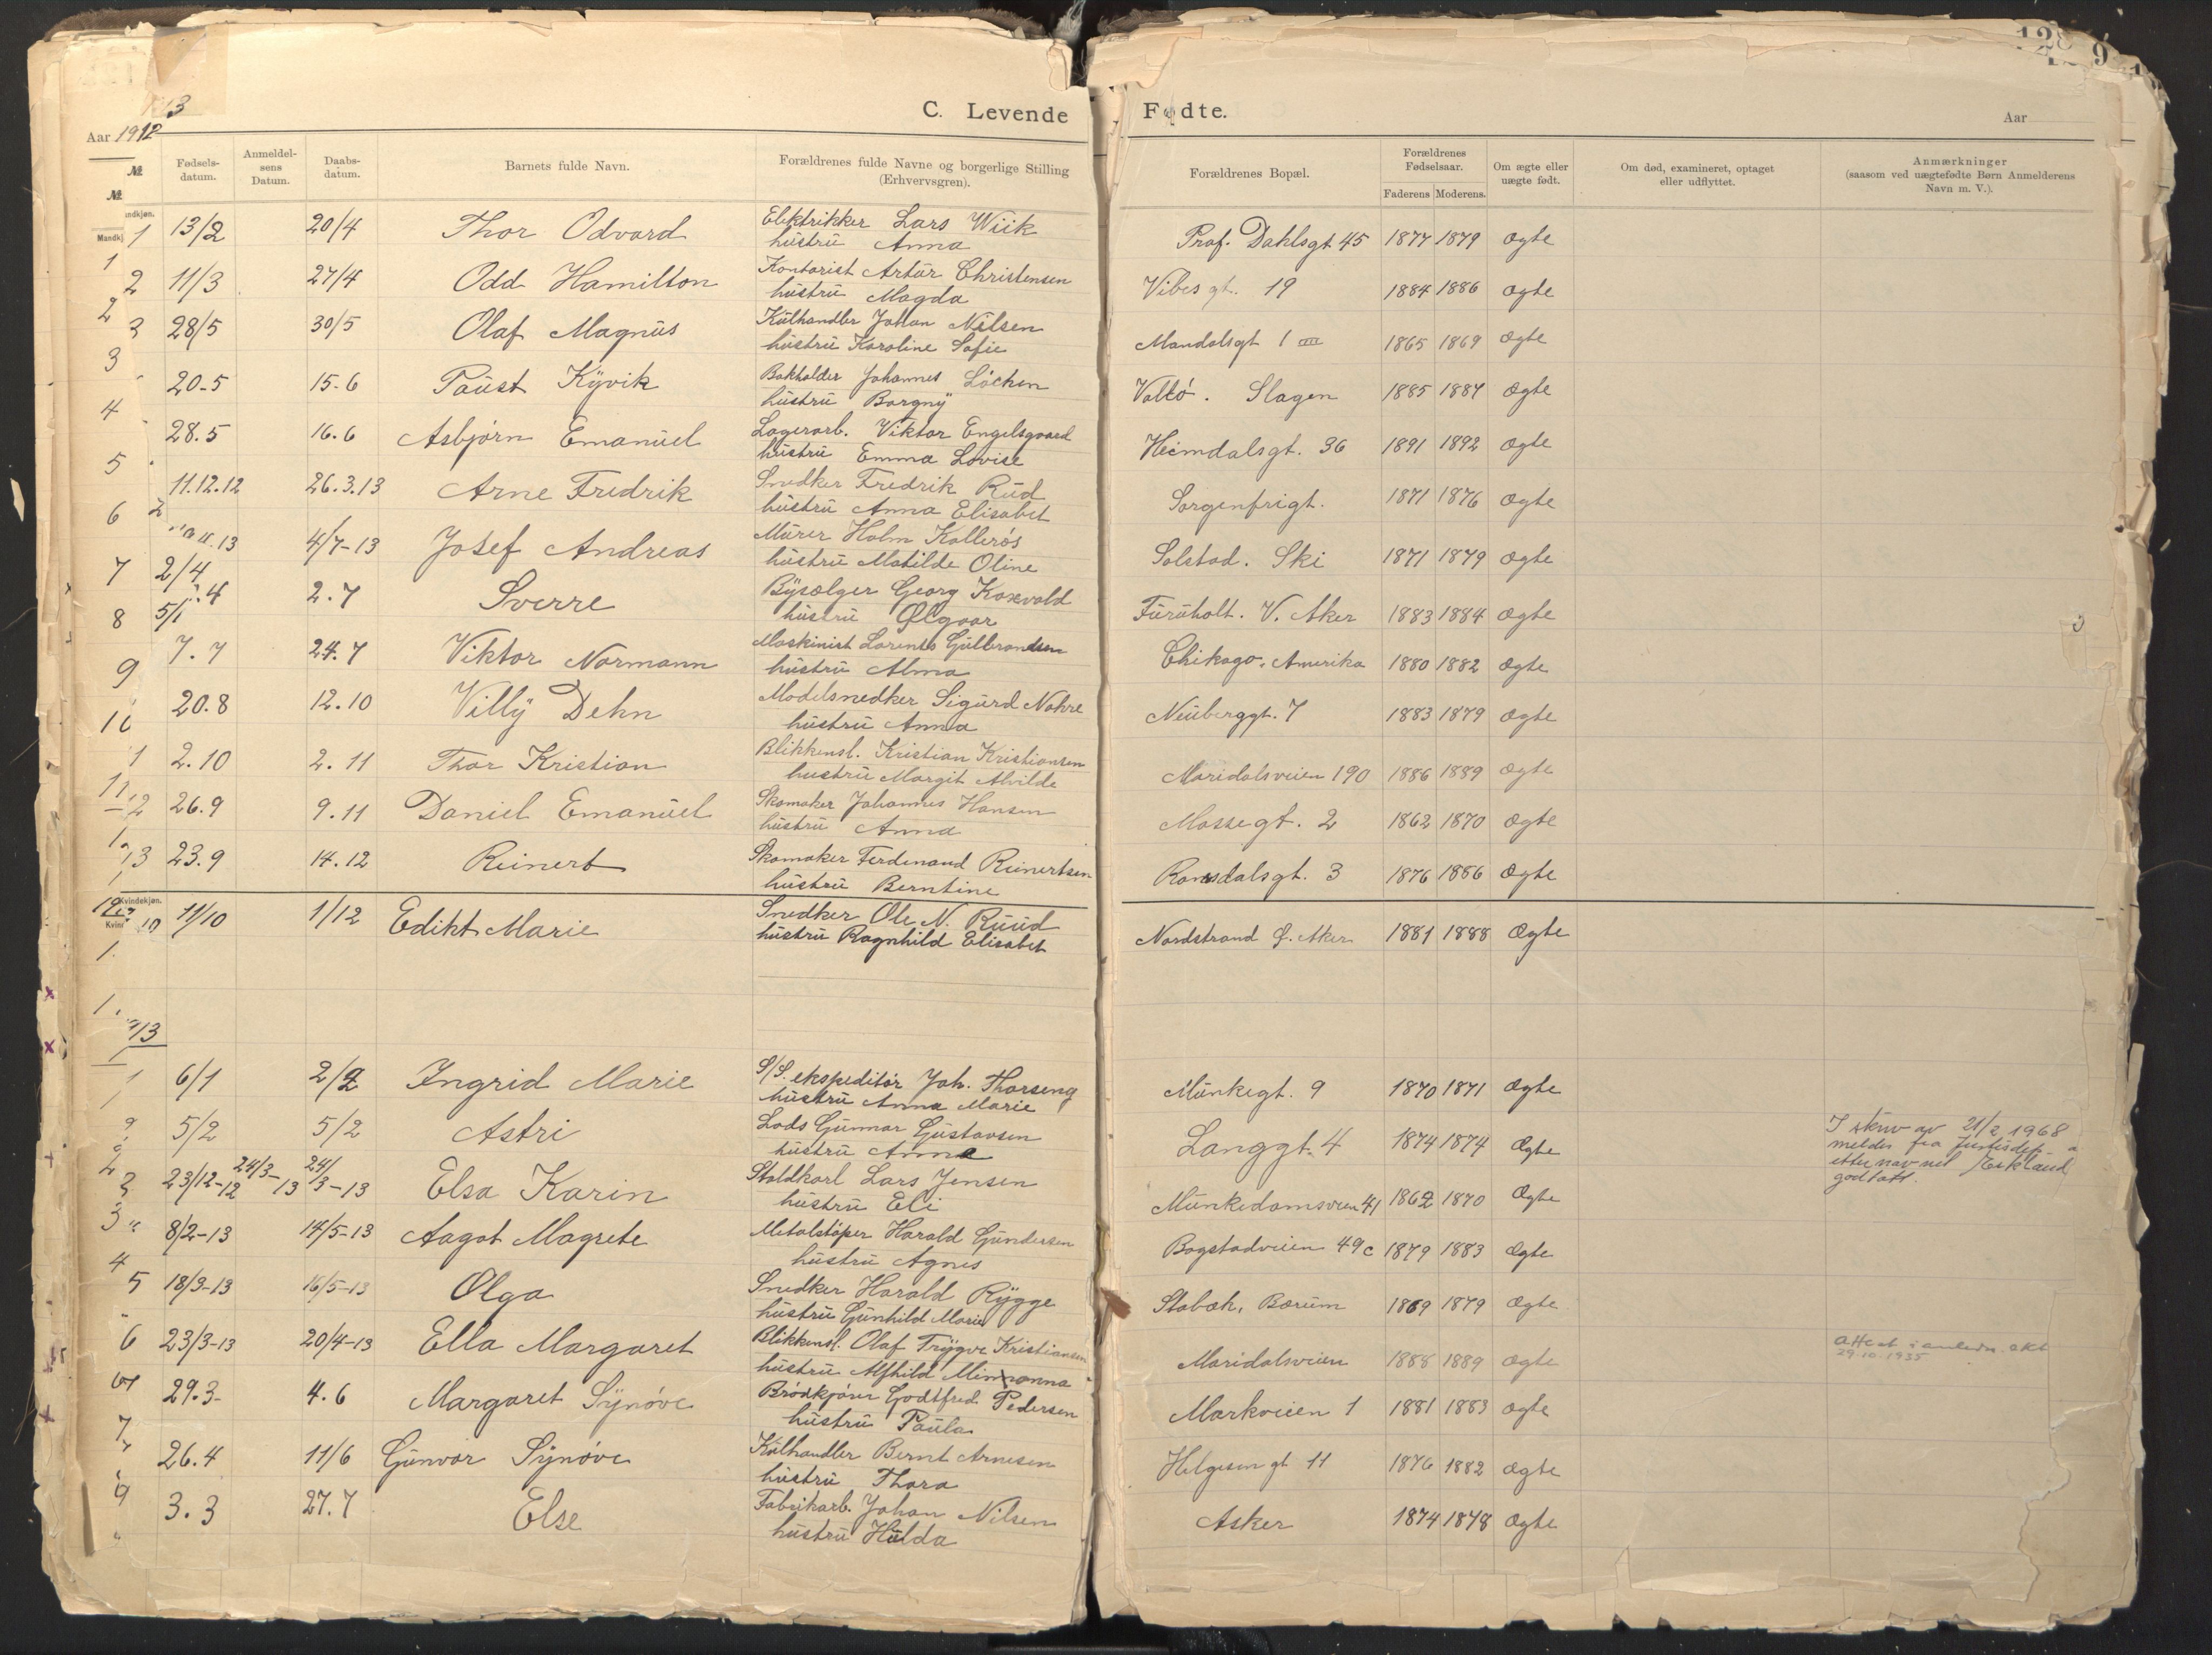 128 9
13
C. Levende Fødte.
Aar 1912
Aar
№
№
Fødsels-
datum.
Anmeldel-
sens
Datum.
Daabs-
datum.
Barnets fulde Navn.
Forældrenes fulde Navne og borgerlige Stilling
(Erhvervsgren).
Forældrenes Bopæl.
Forældrenes
Fødselsaar.
Faderens Moderens.
Om ægte eller
uægte født.
Om død, examineret, optaget
eller udflyttet.
Anmærkninger
(saasom ved uægtefødte Børn Anmelderens
Navn m. V.).
1 13/2 20/4 Thor Odvard Elektrikker Lars Wiik Prof. Dahlsgt 45 1877 1879 Ægte
hustru Anna
2 11/3 27/4 Odd Hamilton Kontorist Artur Christensen Vibesgt. 19 1884 1886 Ægte
hustru Magda
3 28/5 30/5 Olaf Magnus Kulhandler Johan Nilsen Mandalsgt 1 III 1865 1869 Ægte
hustru Karoline Sofie
20-5 15-6 Paust Kyvik Bokholder Johannes Löchen Vallö. Slagen 1885 1887 Ægte
hustru Borgny
28.5 16.6 Asbjørn Emanuel Lagerarb. Viktor Engelsgaard Heimdalsgt. 36 1891 1892 Ægte
hustru Emma Lovise
11.12.12 26.3.13 Arne Fredrik Snedker Fredrik Rud Sorgenfrigt. 1871 1876 Ægte
hustru Anna Elisabet
4/7-13 Josef Andreas Murer Holm Kollerös Solstad. Ski 1871 1879 Ægte
hustru Matilde Oline
2.7 Sverre Bysælger Georg Koxvold Furuholt. V. Aker 1883 1884 Ægte
hustru Olgaar
7.7 24.7 Viktor Normann Maskinist Lorentz Gulbrandsen Chikago, Amerika 1880 1882 Ægte
hustru Alma
20.8 12.10 Villy Dehn Modelsnedker Sigurd Nohre Neuberggt. 7 1883 1879 Ægte
hustru Anna
2.10 2.11 Thor Kristian Blikkensl. Kristian Kristiansen Maridalsveien 190 1886 1889 Ægte
hustru Margit Alvilde
26.9 9.11 Daniel Emanuel Skomaker Johannes Hansen Mossegt. 2 1862 1870 Ægte
hustru Anna
13 23.9 14.12 Reinert Skomaker Ferdinand Reinertsen Romsdalsgt. 3 1876 1886 Ægte
hustru Berntine
Kvindekjøn.
10 11/10 1/12 Edikt Marie Snedker Ole N. Ruud Nordstrand Ö. Aker 1881 1888 Ægte
hustru Ragnhild Elisabet
13
1 6/1 2/2 Ingrid Marie S/S. ekspeditör Joh. Thorseng Munkegt. 9 1870 1871 Ægte
hustru Anna Marie
5/2 5/2 Astri Lods Gunnar Gustavsen Langgt. 4 1874 1874 Ægte
hustru Anna
I skriv av 21/2 1968
meldes fra Justisdep. a
etternavnet Eikland
godtatt.
3 23/12-12 24/3-13 24/3-13 Elsa Karin Staldkarl Lars Jensen Munkedamsveien 41 1862 1870 Ægte
hustru Eli
8/2-13 14/5-13 Aagot Magrete Metalstöper Harald Gundersen Bogstadveien 49c 1879 1883 Ægte
hustru Agnes
5 18/3-13 16/5-13 Olga Snedker Harald Rygge Stabæk, Bærum 1869 1879 Ægte
hustru Gunhild Marie
6 23/3-13 20/4-13 Ella Margaret Blikkensl. Olaf Trygve Kristiansen Maridalsveien 1888 1889 Ægte
hustru Alfhild Minanna
29.10.1935
29.3- 4.6 Margaret Synöve Brödkjører Godtfred Pedersen Markveien 1 1881 1883 Ægte
hustru Paula
26.4 11/6 Gunvor Synöve Kulhandler Bernt Arnesen Helgesens gt 11 1876 1882 Ægte
hustru Thora
3.3 27.7 Else Fabrikarb. Johan Nilsen Asker 1874 1878 Ægte
hustru Hulda